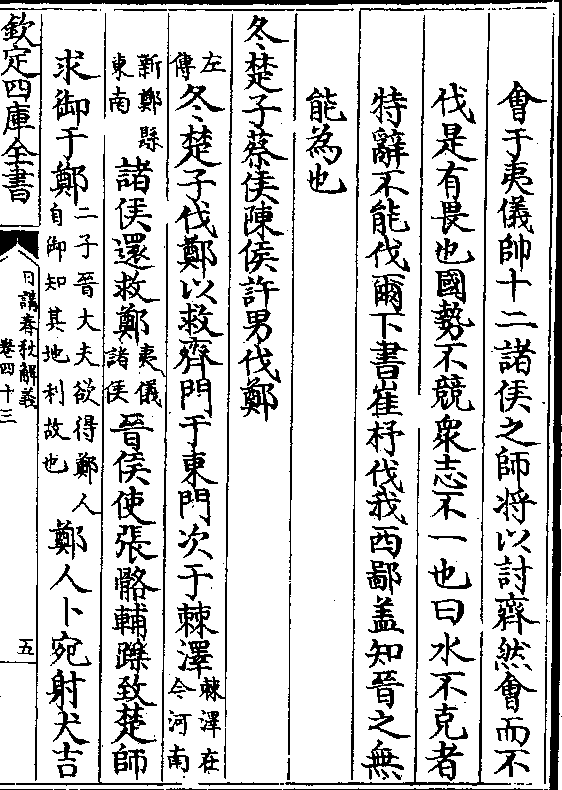 會于夷儀帥十二諸侯之師将以討齊然會而不
伐是有畏也國勢不競衆志不一也曰水不克者
特辭不能伐爾下書崔杼伐我西鄙盖知晉之無
能為也
冬楚子蔡侯陳侯許男伐鄭
左傳冬楚子伐鄭以救齊門于東門次于棘澤棘澤在今河南
新鄭縣東南諸侯還救鄭夷儀諸侯晉侯使張骼輔躒致楚師
求御于鄭二子晉大夫欲得鄭人自御知其地利故也鄭人卜宛射犬吉
欽定四庫全書
日講春秋解義
卷四十三
五